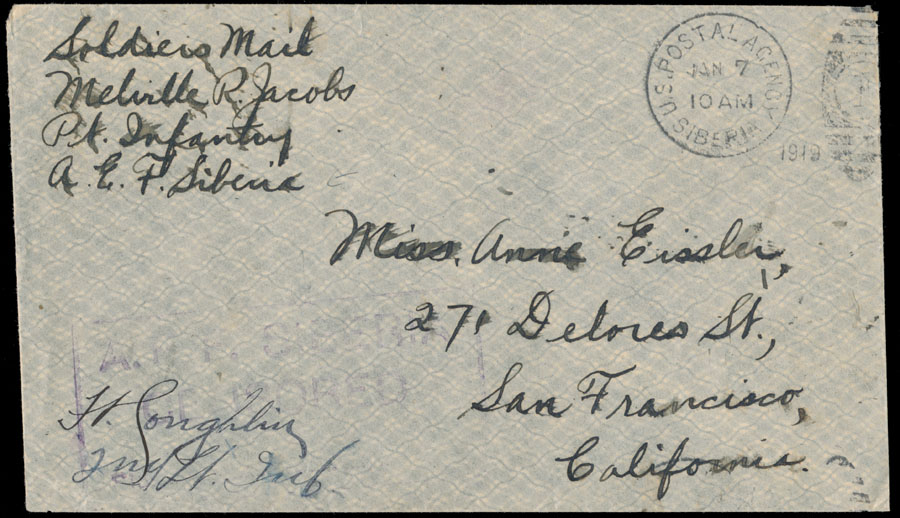 Soldiers Mail
Melville R. Jacobs
Pvt. Infantry
A. E. F. Siberia
U.S. POSTAL AGENCY
JAN 7
10 AM
SIBERIA
1919
Miss. Annie Eissler,
271 Delores St.,
San Francisco,
California.
A. E. F. SIBERIA
CENSORED
Coughlin
2nd Lt. Inf.